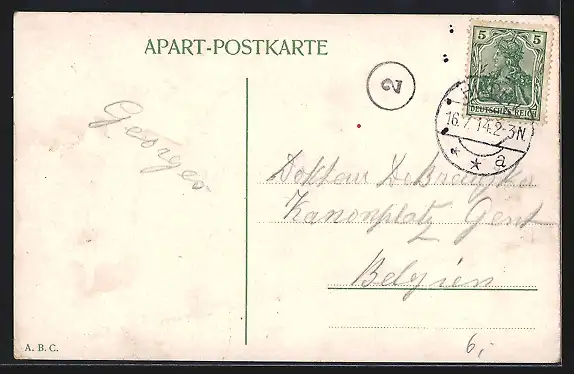 APART-POSTKARTE
5 5
DEUTSCHES REICH
2
16.7.14.2-3N.
* * a
Georges
Dokteur DeBruycker
Kanonplatz Gent
Belgien
A. B. C.
6,